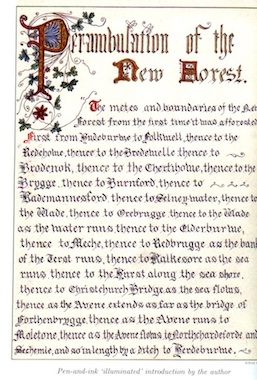 Perambulation of the
New Forest.
The metes and boundaries of the New
Forest from the first time it was afforested
First from Hudeburwe to Folkwell, thence to the
Redehowe, thence to the Bredewelle thence to
Brodenok, thence to the Chertihowe, thence to the
Brygge, thence to Burnford, thence to
Kademannesford, thence to Selney-water, thence to
the Wade, thence to Orebrugge, thence to the Wade
as the water runs, thence to the Olderburwe,
thence to Meche, thence to Redbrugge as the bank
of the Terst runs, thence to Kalkesore as the sea
runs, thence to the Hurst along the sea shore,
thence to Christchurch Bridge as the sea flows,
thence as the Avene extends as far as the bridge of
Forthenbrygge, thence as the Avene runs to
Moletone, thence as the Avene flows, to Northchardeforde and
Sechemle, and so in length by a ditch to
Pen-and-ink 'illuminated' introduction by the author